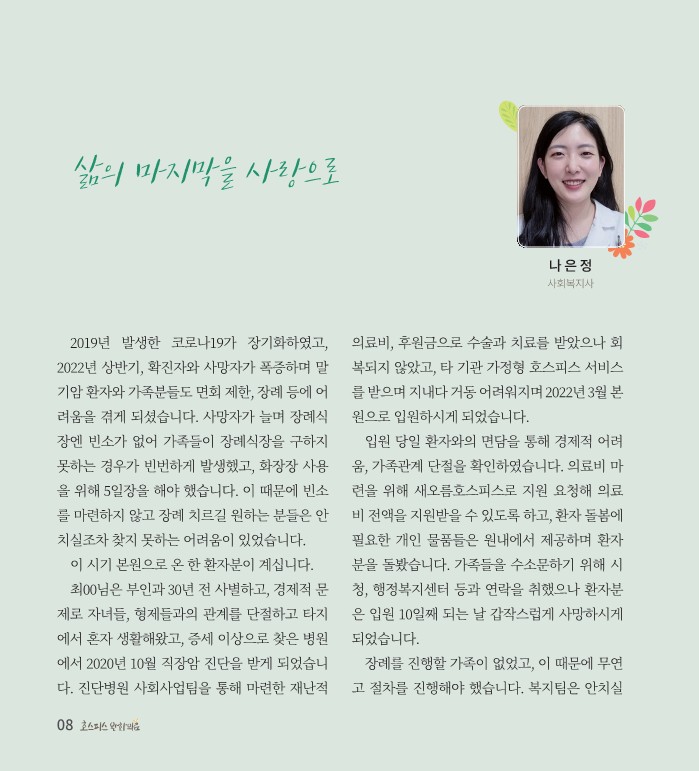 삶의 마지막을 사랑으로
나은정
사회복지사
2019년 발생한 코로나19가 장기화하였고,
2022년 상반기, 확진자와 사망자가 폭증하며 말
기암 환자와 가족분들도 면회 제한, 장례 등에 어
려움을 겪게 되셨습니다. 사망자가 늘며 장례식
장엔 빈소가 없어 가족들이 장례식장을 구하지
못하는 경우가 빈번하게 발생했고, 화장장 사용
을 위해 5일장을 해야 했습니다. 이 때문에 빈소
를 마련하지 않고 장례 치르길 원하는 분들은 안
치실조차 찾지 못하는 어려움이 있었습니다.
이 시기 본원으로 온 한 환자분이 계십니다.
최00님은 부인과 30년 전 사별하고, 경제적 문
제로 자녀들, 형제들과의 관계를 단절하고 타지
에서 혼자 생활해왔고, 증세 이상으로 찾은 병원
에서 2020년 10월 직장암 진단을 받게 되었습니
다. 진단병원 사회사업팀을 통해 마련한 재난적
의료비, 후원금으로 수술과 치료를 받았으나 회
복되지 않았고, 타 기관 가정형 호스피스 서비스
를 받으며 지내다 거동 어려워지며 2022년 3월 본
원으로 입원하시게 되었습니다.
입원 당일 환자와의 면담을 통해 경제적 어려
움, 가족관계 단절을 확인하였습니다. 의료비 마
련을 위해 새오름호스피스로 지원 요청해 의료
비 전액을 지원받을 수 있도록 하고, 환자 돌봄에
필요한 개인 물품들은 원내에서 제공하며 환자
분을 돌봤습니다. 가족들을 수소문하기 위해 시
청, 행정복지센터 등과 연락을 취했으나 환자분
은 입원 10일째 되는 날 갑작스럽게 사망하시게
되었습니다.
장례를 진행할 가족이 없었고, 이 때문에 무연
고 절차를 진행해야 했습니다. 복지팀은 안치실
08 호스피스